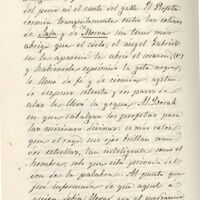 del perro ni el canto del gallo. El Profeta
dormía tranquilamente entre las colinas
de Safa y de Merva sin tener mas
abrigo que el cielo, el angel Gabriel
se le apareció le abrió el corazon (1)
y habiendole esprimido la gota negra,
le llenó de fe y de ciencia, agitan-
do despues setenta y dos pares de
alas le llevó la yegua Al Borak
en que cabalgan los profetas para
las misiones divinas: es mas veloz
que el rayo: sus ojos brillan como
dos estrellas, tan inteligente como el
hombre, solo que está privada del
don de la palabra. Al punto que
fue informada de que aquel a
quien debia llevar era el medianero